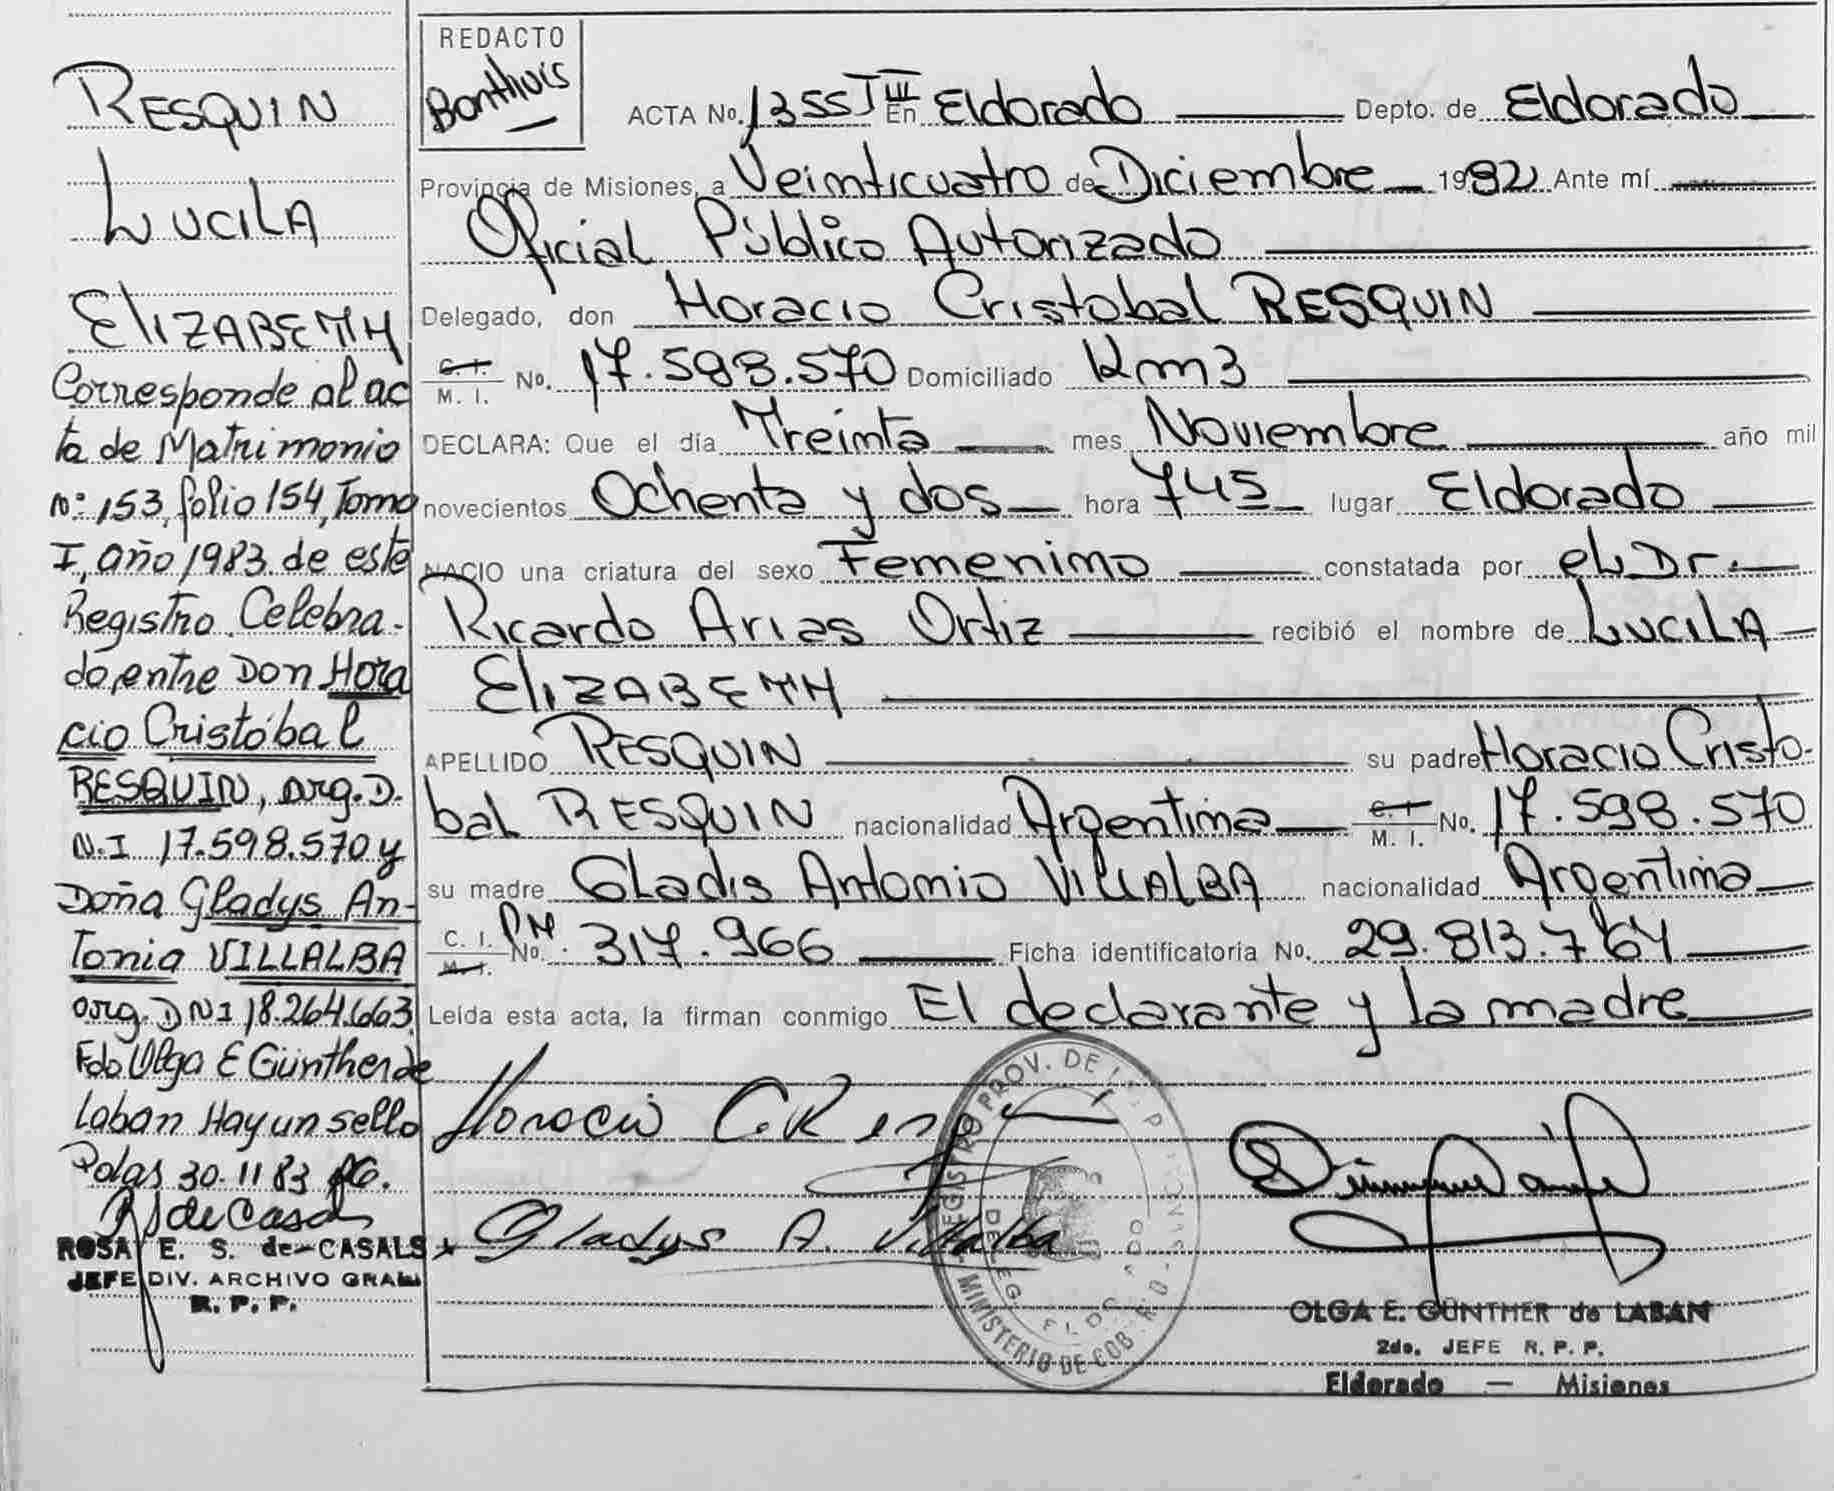 RESQUIN
LUCILA
ELIZABETH
Corresponde al ac
ta de Matrimonio
Nº: 153, folio 154, Tomo
I, año 1983 de este
Registro. Celebra-
do, entre Don Hora
cio Cristóbal
RESQUIN, arg. D.
N.I 17.598.570 y
Doña Gladys An-
tonia VILLALBA
arg. DNI 18.264.663
Fdo Olga E Günther de
Laban Hay un sello
Pdas 30.11 83
ROSA E. S. de CASALS
JEFE DIV. ARCHIVO GRAL
R. P. P.
REDACTO
Bonthuis
ACTA No. 1355 T III En Eldorado Depto. de Eldorado
Provincia de Misiones, a Veinticuatro de Diciembre 1982 Ante mí
Oficial Público Autorizado
Delegado, don Horacio Cristobal RESQUIN
C. I. M. I. No. 17.598.570 Domiciliado Km 3
DECLARA: Que el día Treinta mes Noviembre año mil
novecientos Ochenta y dos hora 745 lugar Eldorado
NACIO una criatura del sexo Femenino constatada por el Dr.
Ricardo Arias Ortiz recibió el nombre de LUCILA
ELIZABETH
APELLIDO RESQUIN su padre Horacio Cristo-
bal RESQUIN nacionalidad Argentina C. I M. I. No. 17.598.570
su madre Gladis Antonia VILLALBA nacionalidad Argentina
C. I. M. I. No. 317.966 Ficha identificatoria No. 29.813.764
Leída esta acta, la firman conmigo El declarante y la madre
Horacio C. Resq
Gladys A. Villalba
REGISTRO PROV. DE
MINISTERIO DE GOB.
DELEG.
OLGA E. GÜNTHER de LABAN
2do. JEFE R. P. P.
Eldorado — Misiones